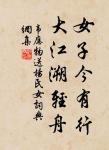 女子今有行
大江溯轻舟
韦应物送杨氏女词典
网集